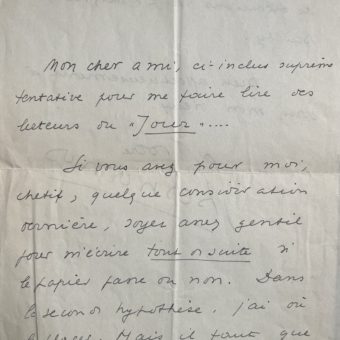 Mon cher ami, ci-inclus suprême
tentative pour me faire lire des
lecteurs du "Jour"....
Si vous avez pour moi,
chétif, quelque considération
dernière, soyez assez gentil
pour m'écrire tout de suite si
le papier passe ou non. Dans
le second hypothèse, j'ai où
Mais il faut que